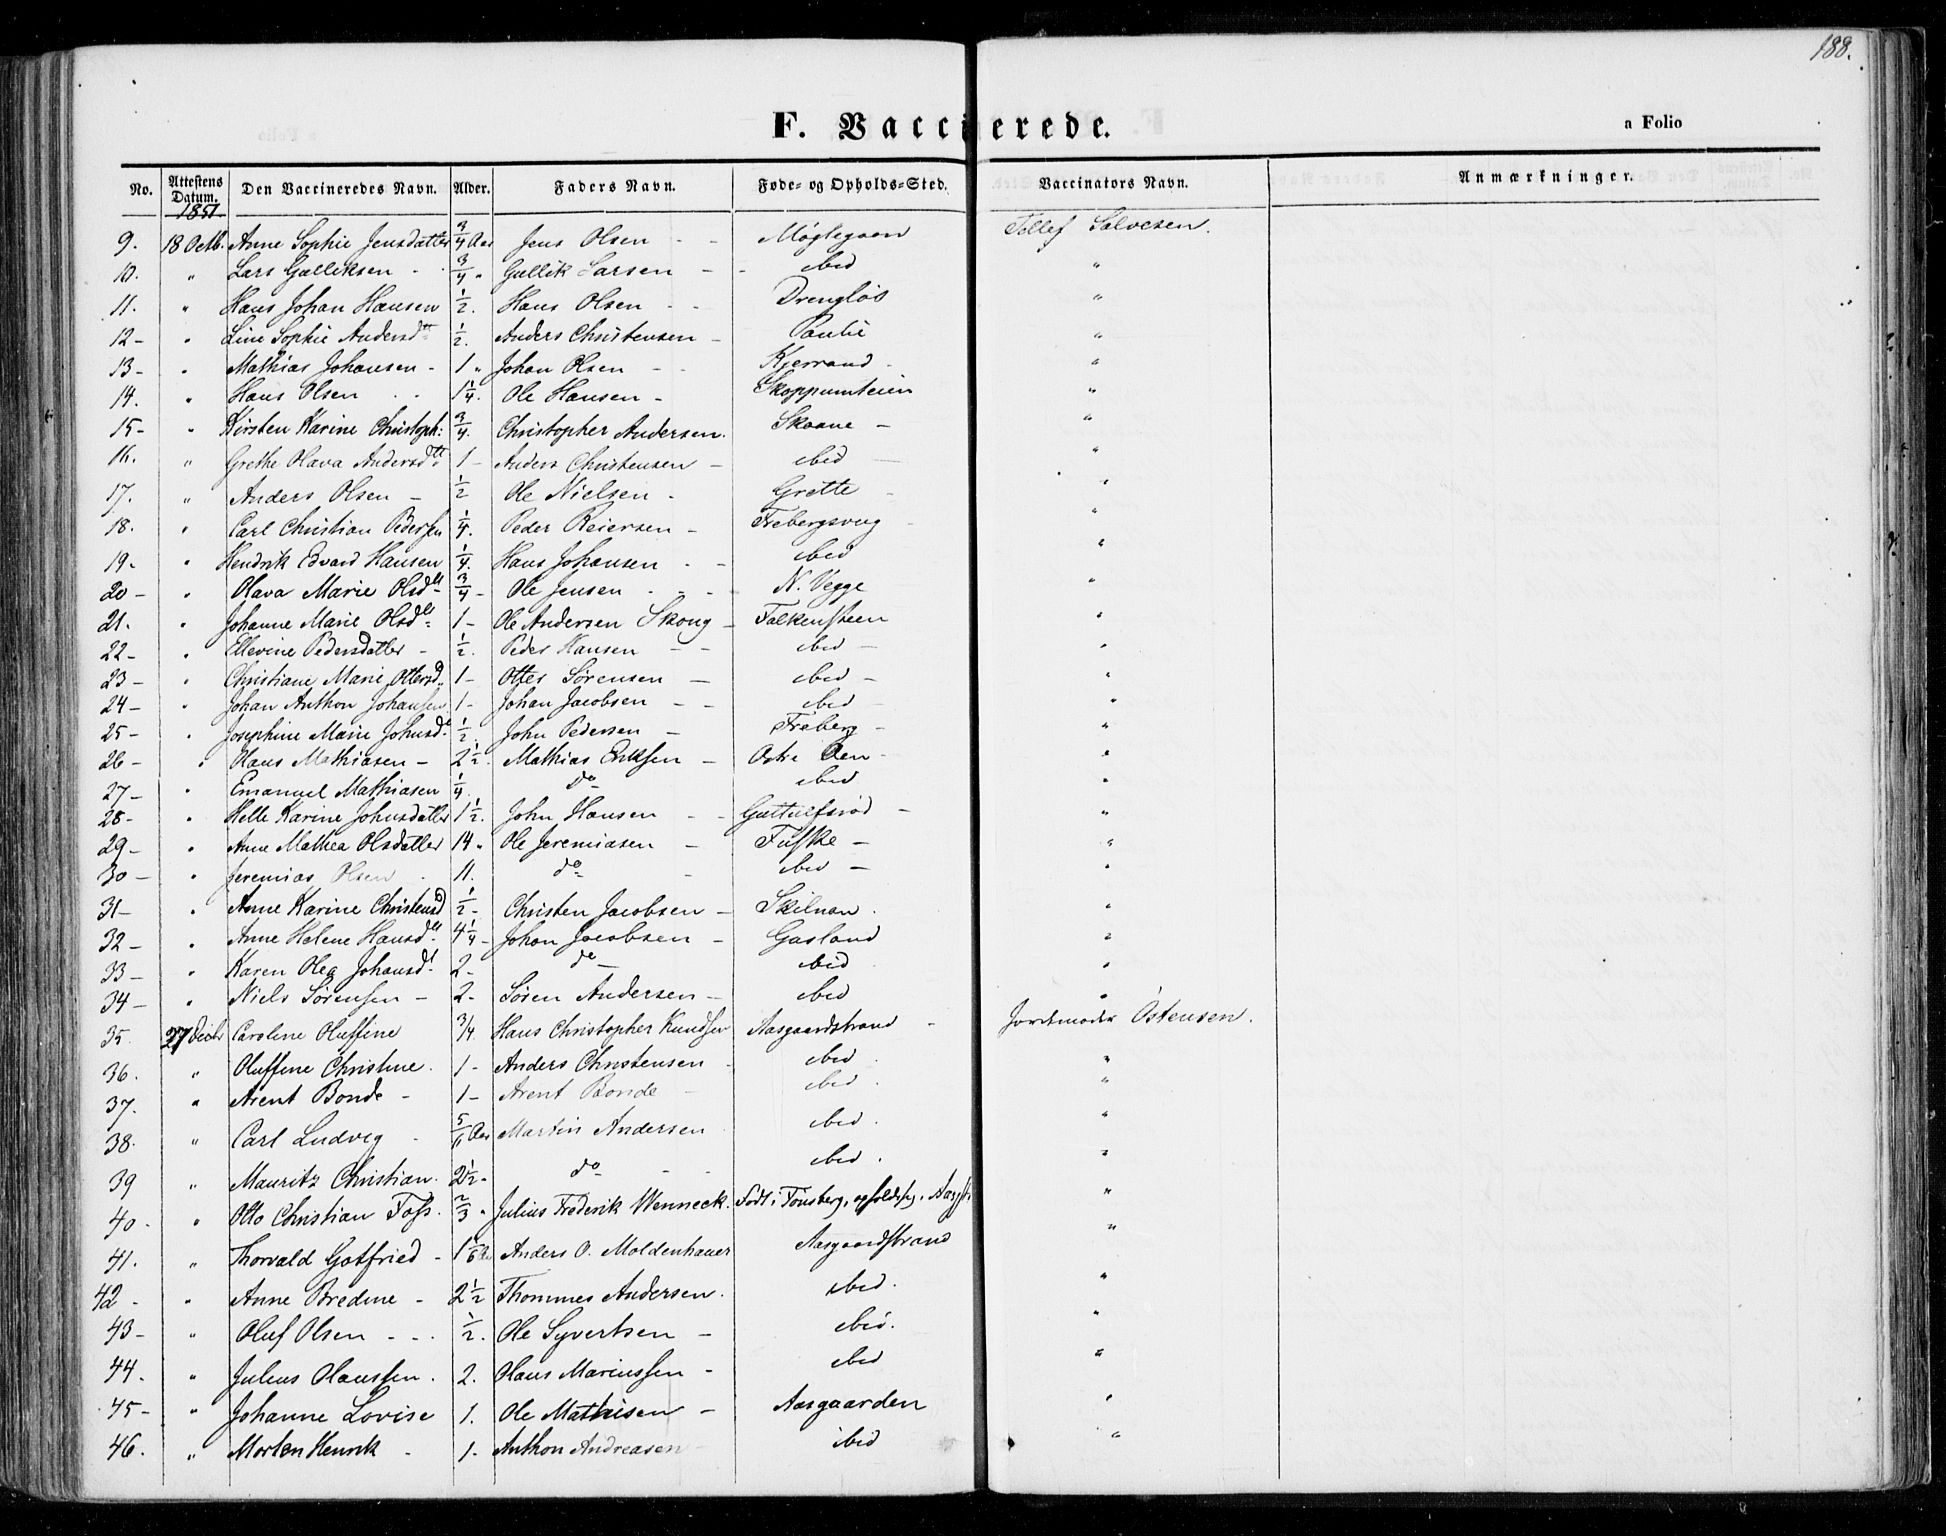 188.
F. Vaccinerede.
a Folio
No. Attestens Datum. Den Vaccineredes Navn. Alder. Faders Navn. Føde- og Opholds-Sted. Vaccinators Navn. Anmærkninger.
1851
9. 18 Octb. Anne Sophie Jensdatter 3/4 Aar Jens Olsen - - Møglegaon Tellef Salvesen.
10. " Lars Gulliksen - 3/4 " Gullik Larsen - - ibid "
11. " Hans Johan Hansen 1/2. Hans Olsen - - Drengløs "
12- " Line Sophie Andersdtt 1/2. Anders Christensen - Paulie "
13- " Mathias Johansen - 1 " Johan Olsen - - Kjerrand - "
14. " Hans Olsen 1 1/4. Ole Hansen - Skoppumteien "
15- " Kirsten Karine Christoph: 3/4. Christopher Andersen. Skaane - "
16. " Grethe Olava Andersdtt 1- Anders Christensen - ibid - "
17. " Anders Olsen - 1/2 Ole Nielsen - Grette - "
18. " Carl Christian Pedersen 1/4. Peder Reiersen - Frebergsvug - "
19- " Hendrik Edvard Hansen 1/4. Hans Johansen - - ibid "
20- " Olava Marie Olsdtt 3/4- Ole Jensen - - - N. Vegge "
21. " Johanne Marie Olsdtt 1- Ole Andersen Skoug - Falkensteen "
22- " Ellevine Pedersdatter - 1/2. Peder Hansen - - ibid - "
23- " Christiane Marie Ottersd. 1- Otter Sørensen - ibid - "
24- " Johan Anthon Johansen 1- Johan Jacobsen - - ibid - "
25- " Josephine Marie Johnsd. 1/2. John Pedersen - Freberg - "
26- " Hans Mathiasen - 2 1/2. Mathias Eriksen - Østre Øen - "
27- " Emanuel Mathiasen 1/4. do ibid "
28- " Helle Karine Johnsdatter 1 1/2. John Hansen - - Guttulfsrød - "
29- " Anne Mathea Olsdatter 14 " Ole Jeremiasen - Fuske - "
30- " Jeremias Olsen - 11. do - ibid - "
31- " Anne Karine Christensd 1/2- Christen Jacobsen - Skilnan. "
32- " Anne Helene Hansdtt 4 1/4- Johan Jacobsen - Gasland "
33- " Karen Olea Johansdt 2- do ibid "
34- " Niels Sørensen - 2- Søren Andersen - ibid "
35. 27 Decbr Caroline Oluffine 3/4. Hans Christopher Knudsen Aasgaardstrand - Jordemoder Østensen.
36. " Oluffine Christine. 1- Anders Christensen - ibid. "
37. " Arent Bonde - 1- Arent Bonde - ibid. "
38. " Carl Ludvig - 5/6 Aar Martin Andersen ibid. "
39 " Mauritz Christian. 2 1/2- do - - ibid. "
40- " Otto Christian Foss. 2/3 " Julius Frederik Wenneck. Født i Tønsberg, opholdstg. Aasgst "
41. " Thorvald Gotfried - 1 1/6 Aar Anders O. Moldenhauer Aasgaardstrand "
42- " Anne Bredine - 2 1/2 Thommes Andersen. ibid. "
43- " Oluf Olsen - - - 1/2. Ole Syvertsen - ibid. "
44. " Julius Hanssen. 2. Hans Mariussen - ibid "
45- " Johanne Lovise 1. Ole Mathisen - Aasgaarden "
46. " Morten Henrik - 1- Anthon Andreasen - ibid "